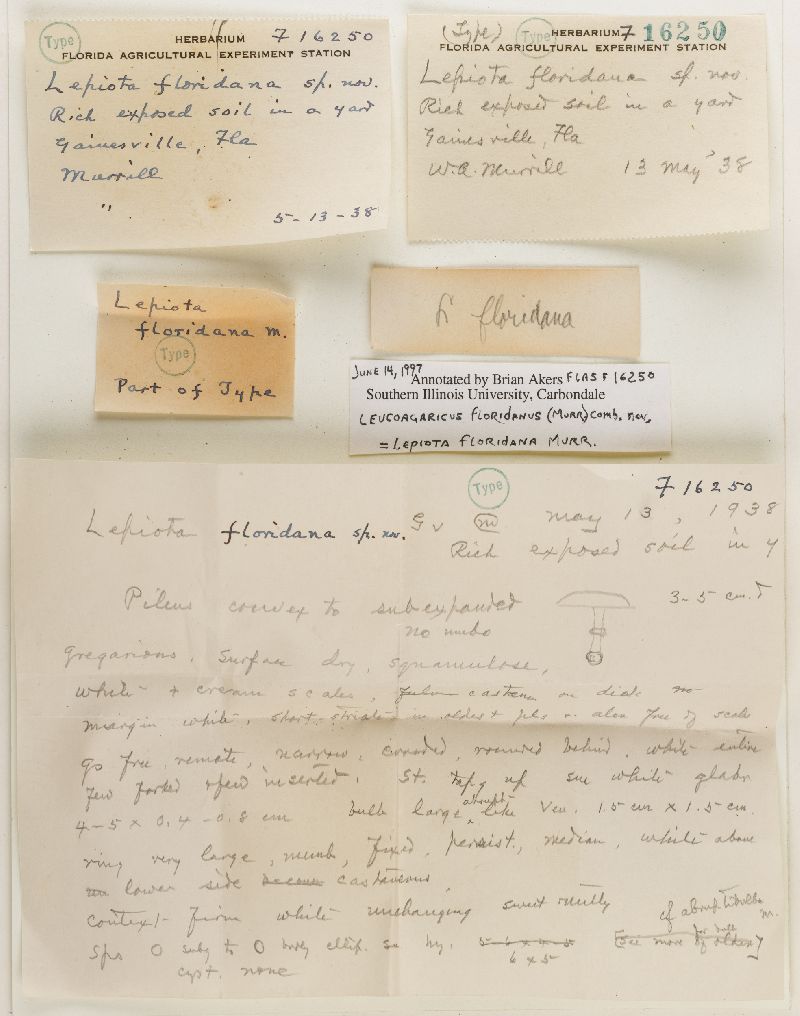 Type
HERBARIUM F 16250
FLORIDA AGRICULTURAL EXPERIMENT STATION
Lepiota floridana sp. nov.
Rich exposed soil in a yard
Gainesville, Fla
Murrill
"
5-13-38
(Type) Type HERBARIUM F 16250
FLORIDA AGRICULTURAL EXPERIMENT STATION
Lepiota floridana sp. nov.
Rich exposed soil in a yard
Gainesville, Fla
W.A. Murrill 13 May '38
Lepiota
floridana M.
Type
Part of Type
L floridana
JUNE 14, 1997
Annotated by Brian Akers FLAS F 16250
Southern Illinois University, Carbondale
LEUCOAGARICUS FLORIDANUS (MURR.) comb. nov.
= LEPIOTA FLORIDANA MURR.
Type
F 16250
Lepiota floridana sp. nov. Gv m May 13, 1938
Rich exposed soil in y
Pileus convex to subexpanded 3-5 cm.
no umbo
gregarious. Surface dry, squamulose,
white + cream scales, castan on disk
margin white, short-striate in oldest free of scales
free, remote, narrow, crowded, rounded behind, white entire
few forked + few inserted. St. up white glabr
4-5 x 0.4-0.8 cm bulb large, abrupt like Vol. 1.5 cm x 1.5 cm.
ring very large, memb, fixed, persist., median, white above
lower side castaneous
context firm white unchanging sweet nutty
Sps O subg to O ellip. sm hy. 5-6 x 4-5
6 x 5
cyst. none
cf abruptibulba M.
for bulb
(See more of older)